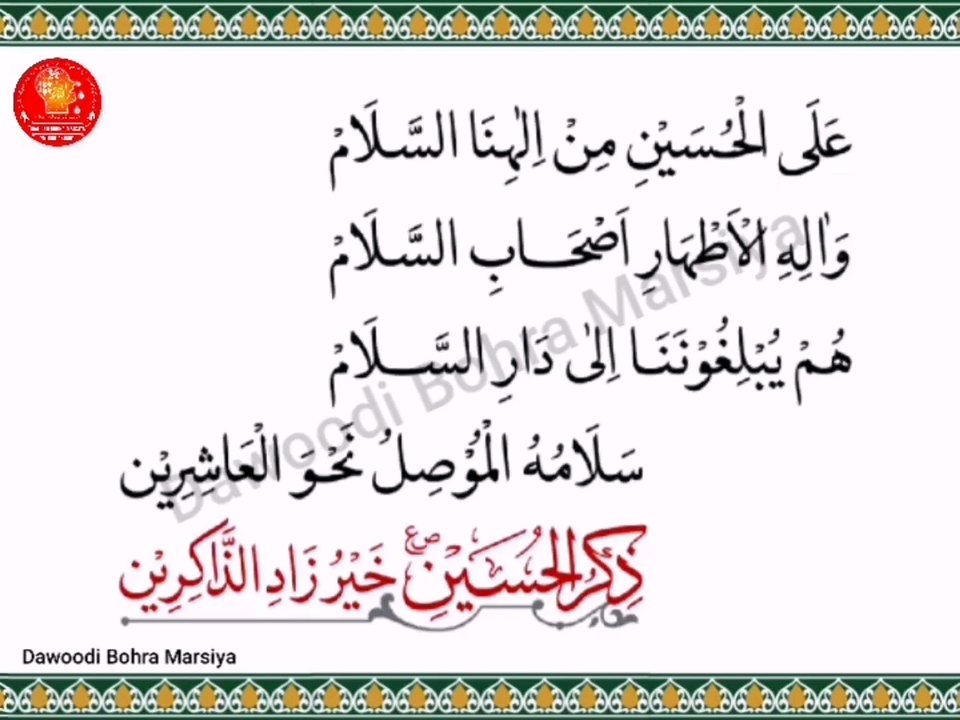 عَلَى الْحُسَيْنِ مِنْ اِلٰهِنَا السَّلَامْ
وَاٰلِهِ الْاَطْهَارِ اَصْحَابِ السَّلَامْ
هُمْ يُبْلِغُوْنَنَا اِلٰى دَارِ السَّلَامْ
سَلَامُهُ الْمُوْصِلُ نَحْوَ الْعَاشِرِيْن
ذِكْرُ الْحُسَيْنِ ص ع خَيْرُ زَادِ الذَّاكِرِيْن
Dawoodi Bohra Marsiya
Dawoodi Bohra Marsiya